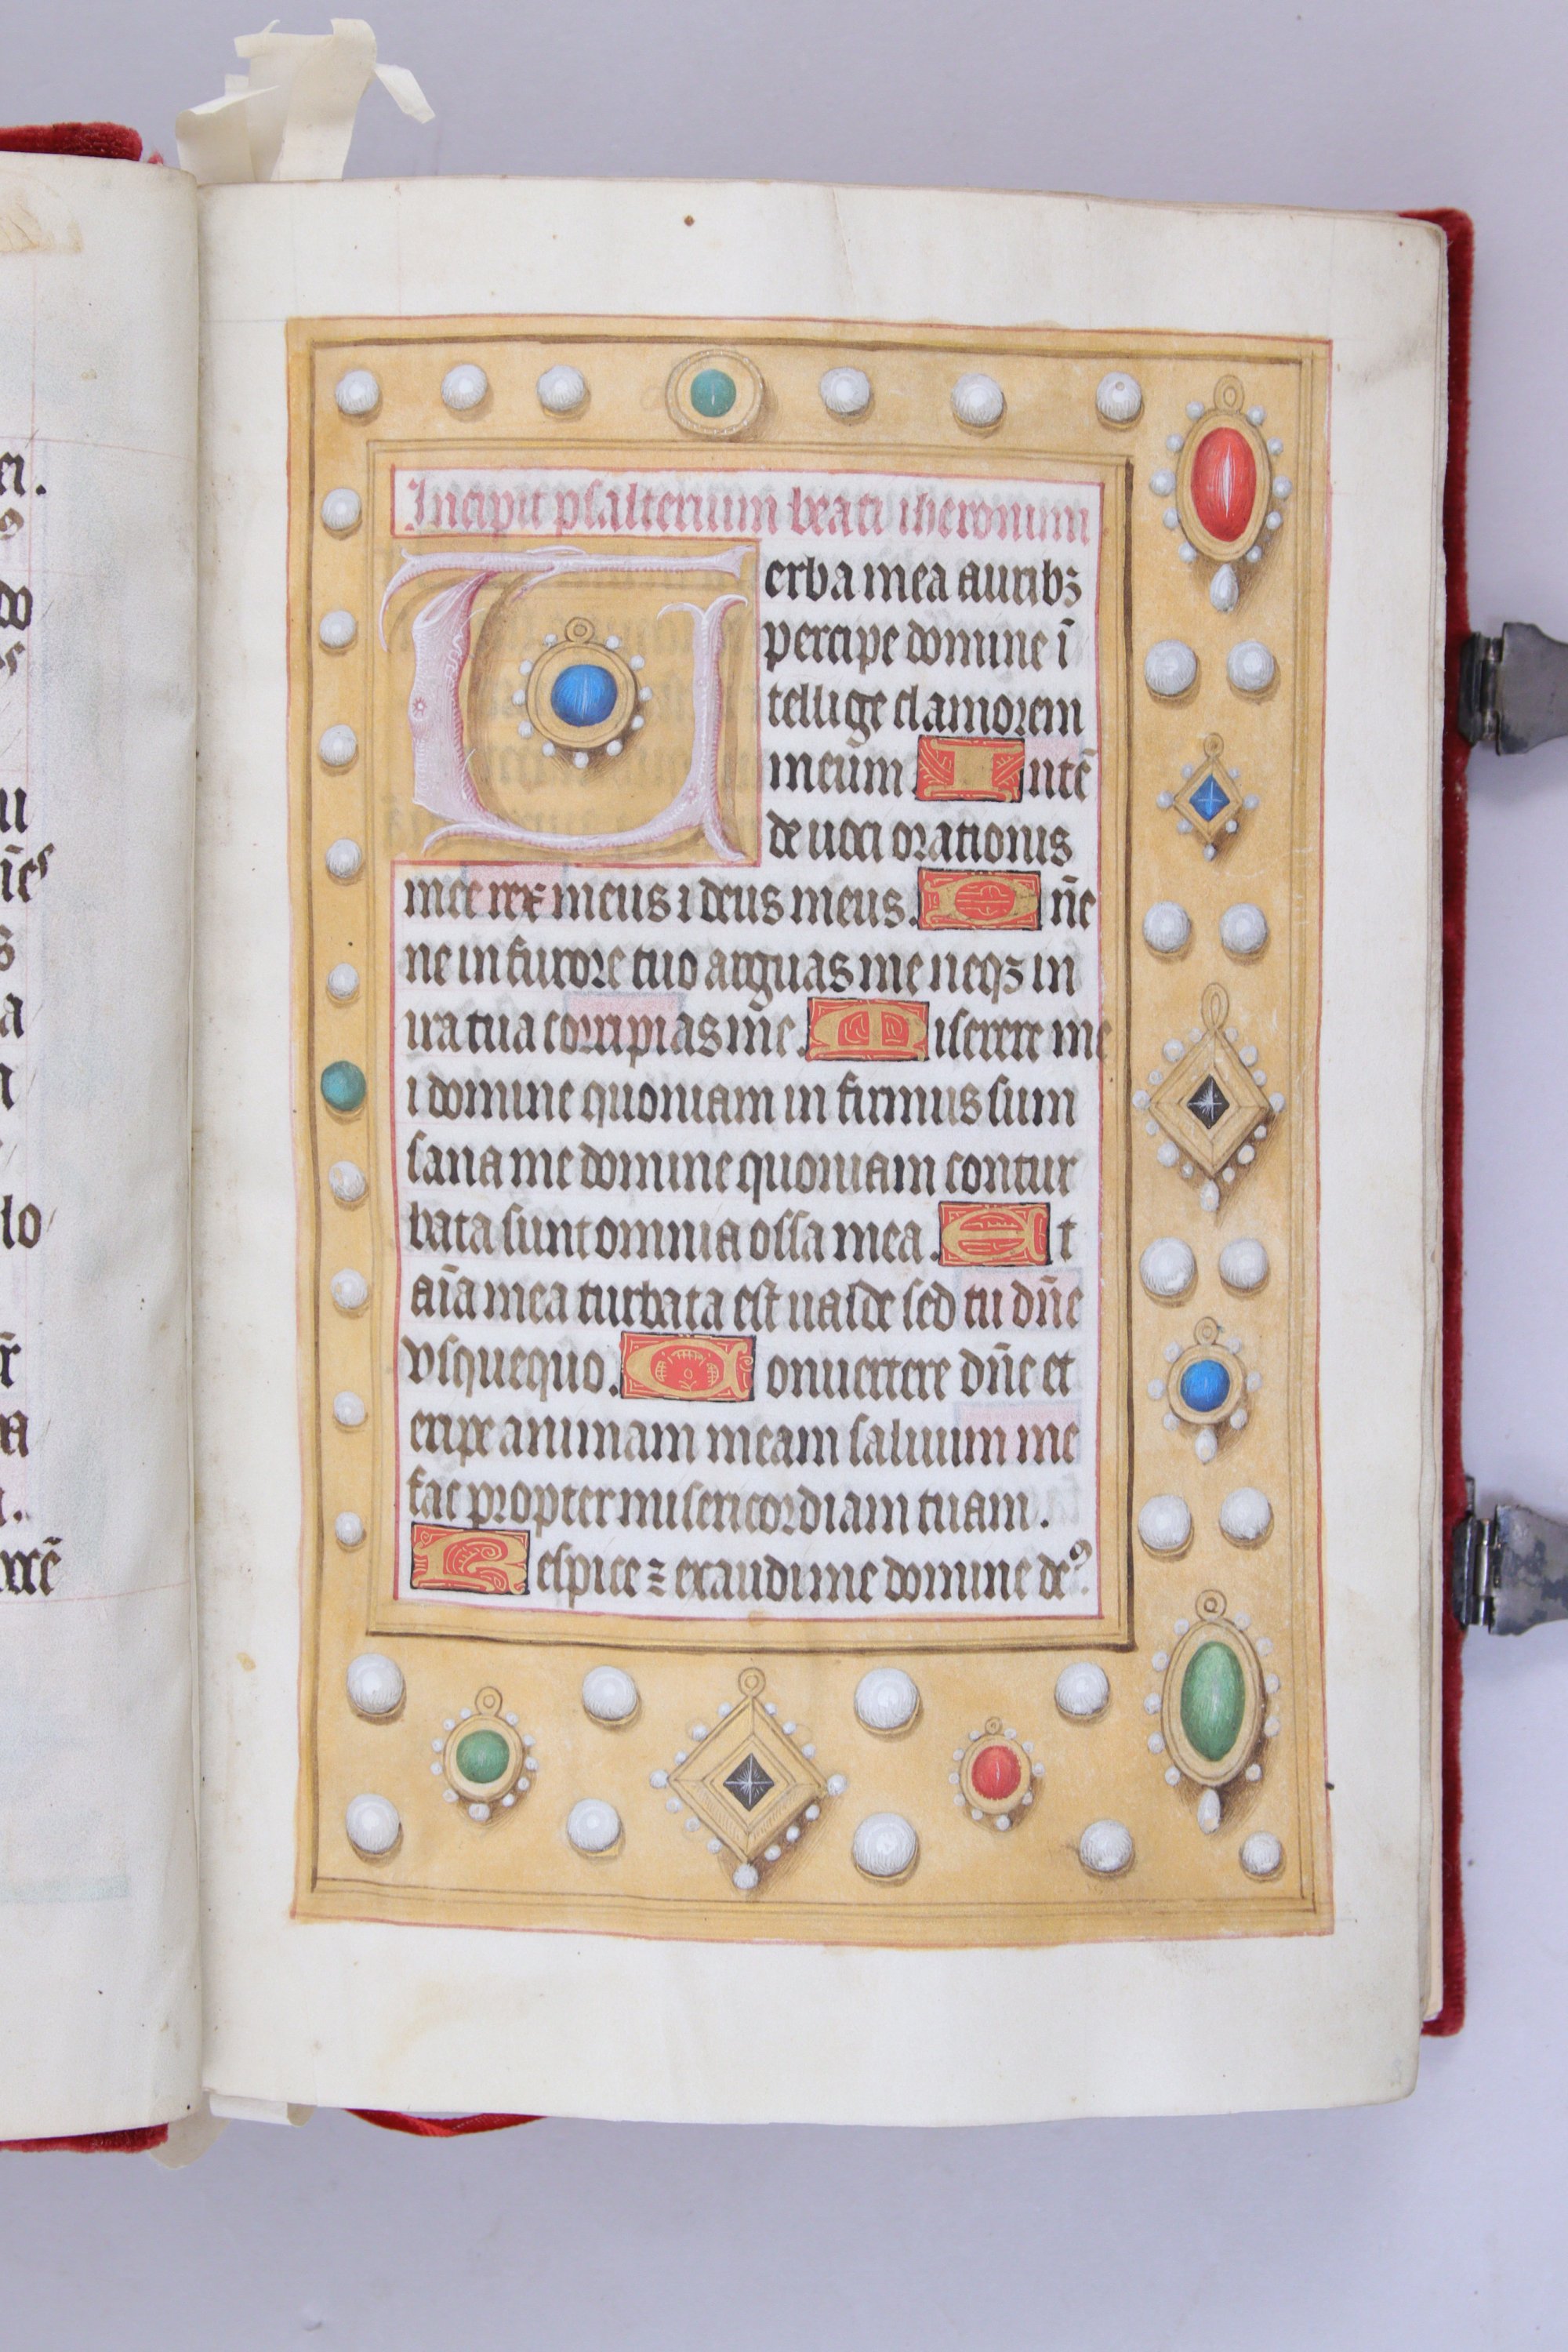 Incipit psalterium beati iheronimi
Verba mea auribꝫ
percipe domine ī
tellige clamorem
meūm Intē
de uoci orationis
mee rex meus ⁊ deus meus. Dñe
ne in furore tuo arguas me neqꝫ in
ira tua corripias m̄e. Miserere me
i domine quoniam in firmus sum
sana me domine quoniam contur
bata sunt omnia ossa mea. Et
aīa mea turbata est ualde sed tu dñe
vsquequo. Conuertere dñe et
eripe animam meam saluum me
fac propter misericordiam tuam.
Respice ⁊ exaudi me domine deꝰ